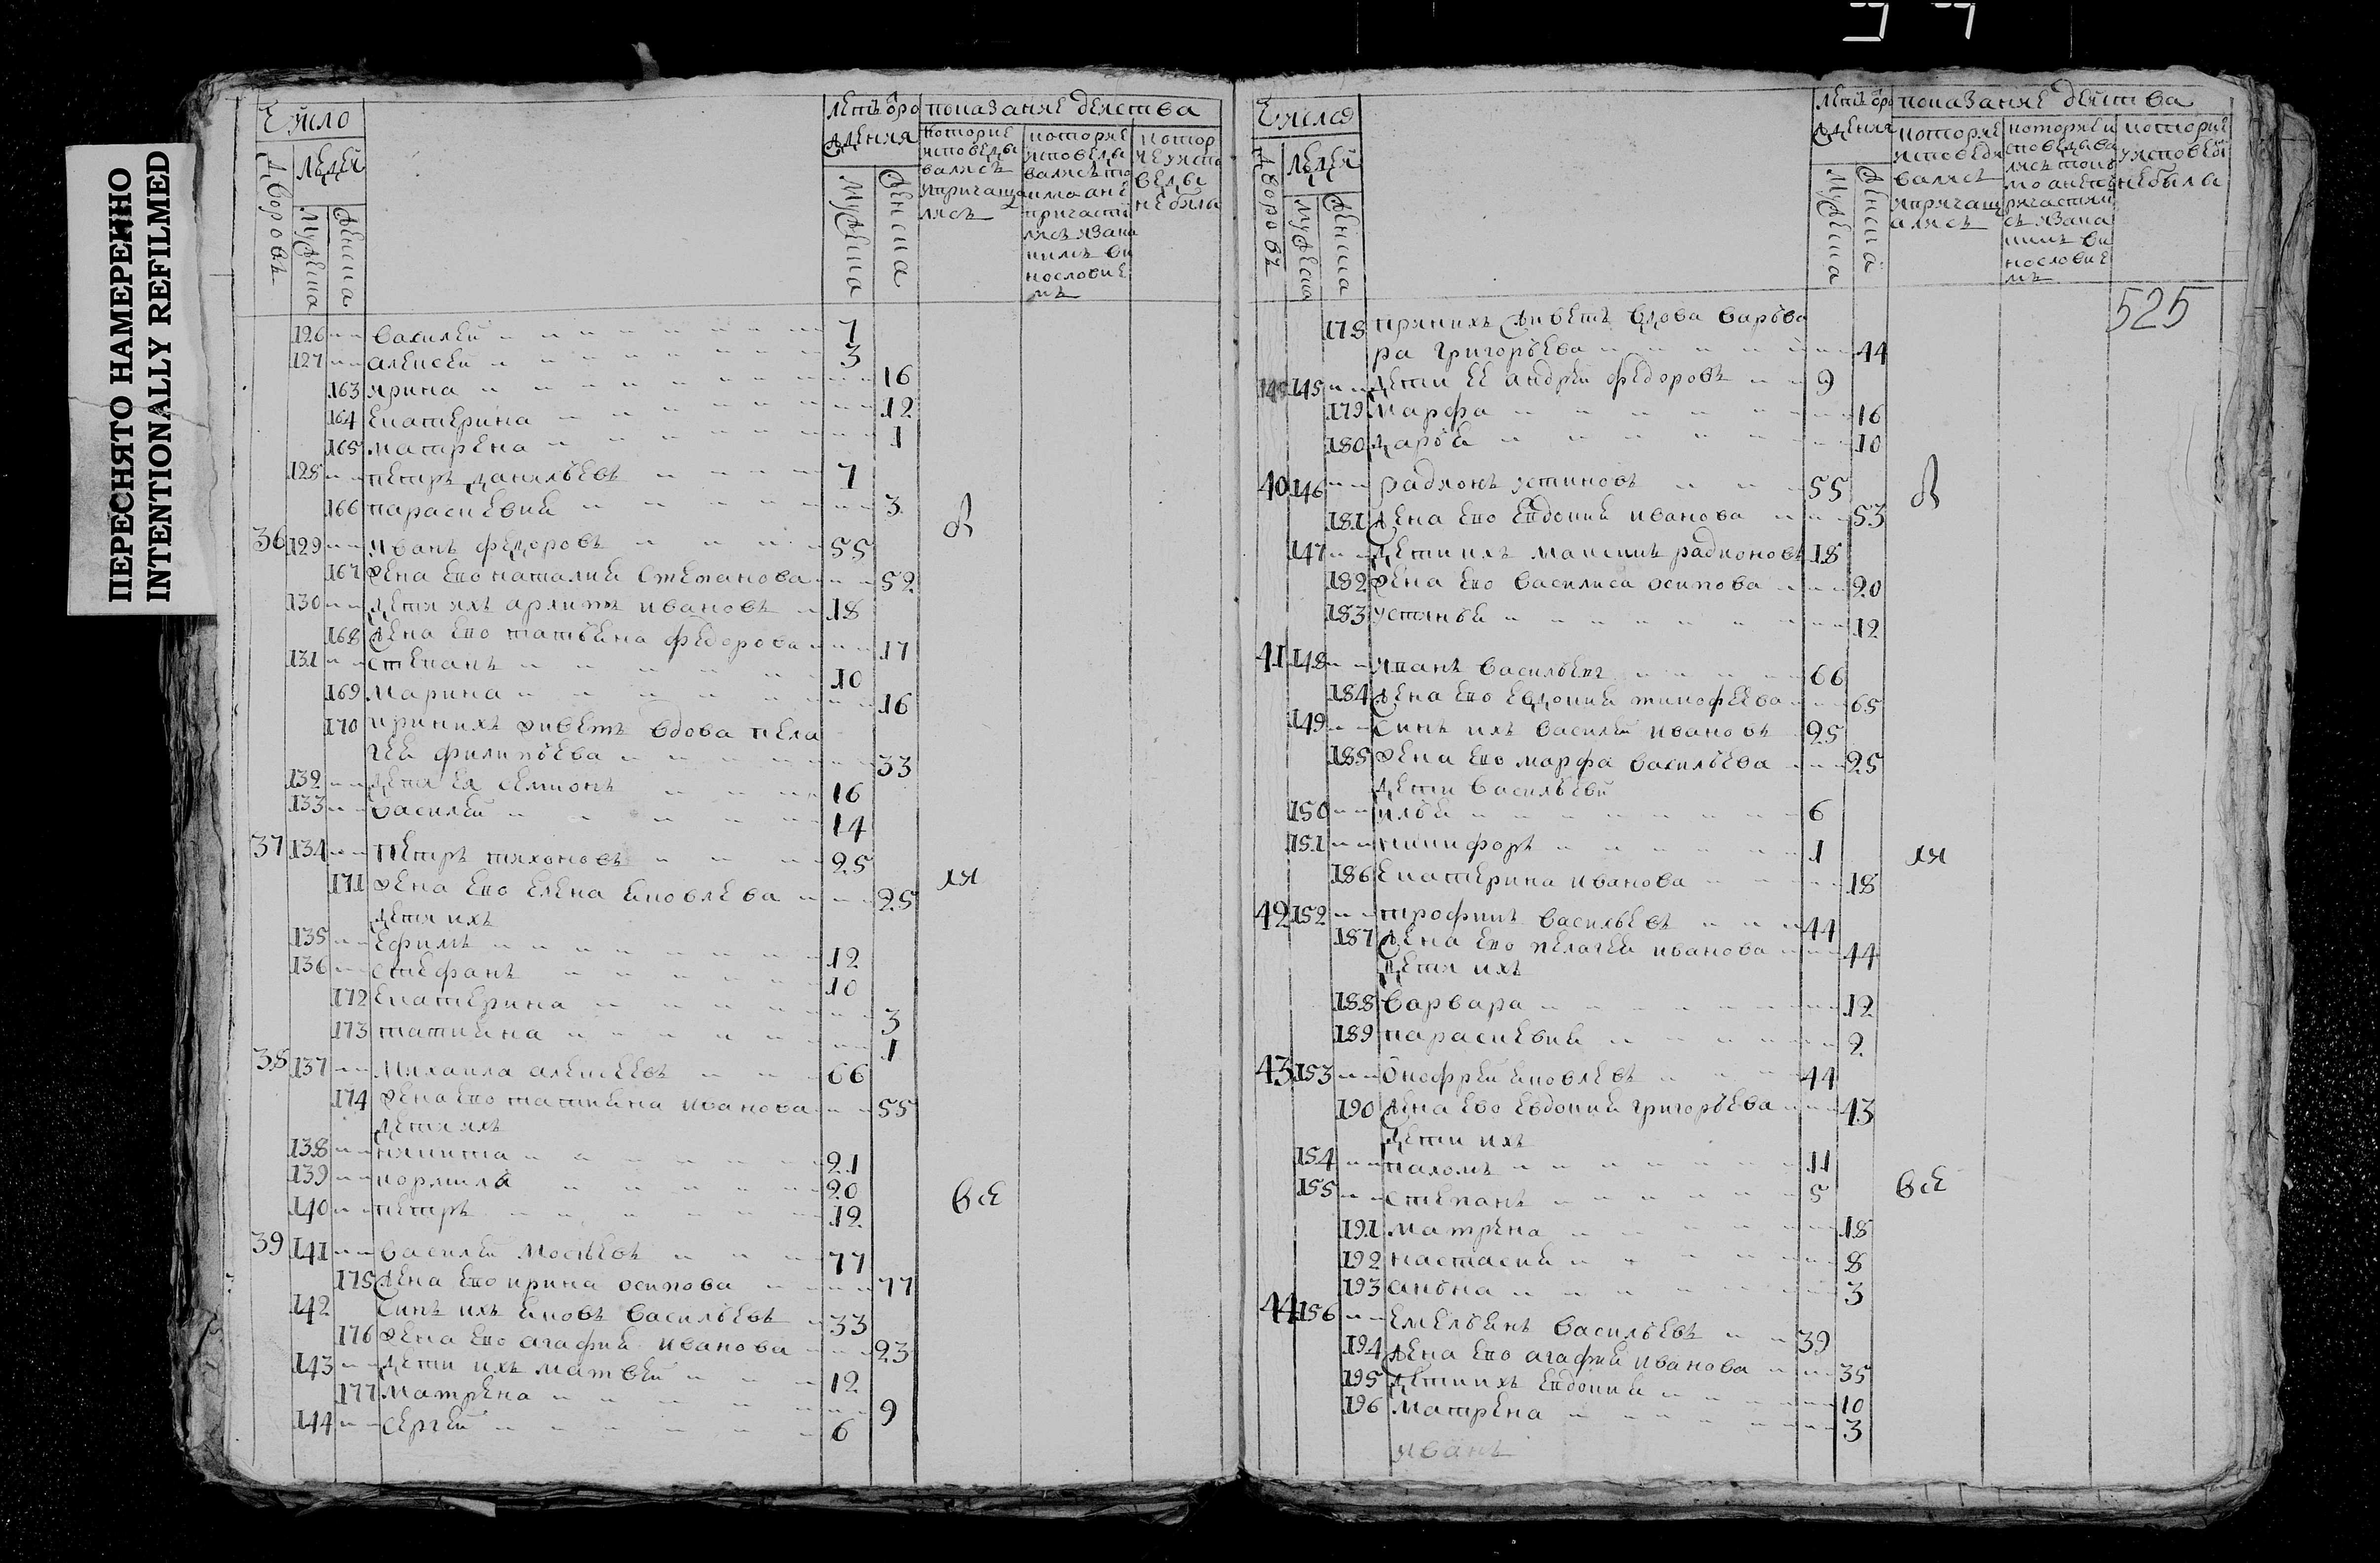 ПЕРЕСНЯТО НАМЕРЕННО
INTENTIONALLY REFILMED
Число
Дворовъ
людей
мужеска
женска
летъ рожденя
мужеска
женска
показание действа
126 василей 7
127 алексей 3
163 ирина 16
164 екатерина 12
165 матрена 1
128 петръ данильевъ 7
166 параскевия 3
36 129 иванъ федоровъ 55
167 жена ево наталия степанова 52
130 дети ихъ архипъ ивановъ 18
168 жена ево татьяна федорова 17
131 степанъ 10
169 марина 16
170 при нихъ живетъ вдова пела
гея филипьева 33
132 дети ея семионъ 16
133 василей 14
37 134 петръ тихоновъ 25
171 жена ево елена яковлева 25
дети ихъ
135 ефимъ 12
136 стефанъ 10
172 екатерина 3
173 татияна 1
38 137 михаила алексеевъ 66
174 жена ево татияна иванова 55
дети ихъ
138 никита 21
139 кормила 20
140 петръ 12
39 141 василей мосеевъ 77
175 жена ево ирина осипова 77
142 синъ ихъ яковъ васильевъ 33
176 жена ево агафия иванова 23
143 дети ихъ матвей 12
177 матрена 9
144 сергей 6
ли
все
Числа
Дворовъ
людей
мужеска
женска
летъ рожденя
мужеска
женска
показание действа
525
178 при нихъ живетъ вдова варьва
ра григорьева 44
145 дети ее андрей федоровъ 9
179 марфа 16
180 дарья 10
40 146 радионъ устиновъ 55
181 жена ево евдокия иванова 53
147 дети ихъ максимъ радионовъ 18
182 жена ево василиса осипова 20
183 устинья 12
41 148 иванъ васильевъ 66
184 жена ево евдокия тимофеева 65
149 синъ ихъ василей ивановъ 25
185 жена ево марфа васильева 25
дети васильевы
150 илья 6
151 никифоръ 1
186 екатерина иванова 18
42 152 трофимъ васильевъ 44
187 жена ево пелагея иванова 44
дети ихъ
188 варвара 12
189 параскевия 2
43 153 онофрей яковлевъ 44
190 жена ево евдокия григорьева 43
дети ихъ
154 пахомъ 11
155 степанъ 5
191 матрена 18
192 настасия 8
193 аньна 3
44 156 емельянъ васильевъ 39
194 жена ево агафия иванова 35
195 дети ихъ евдокия 10
196 матрена 3
иванъ
ли
все